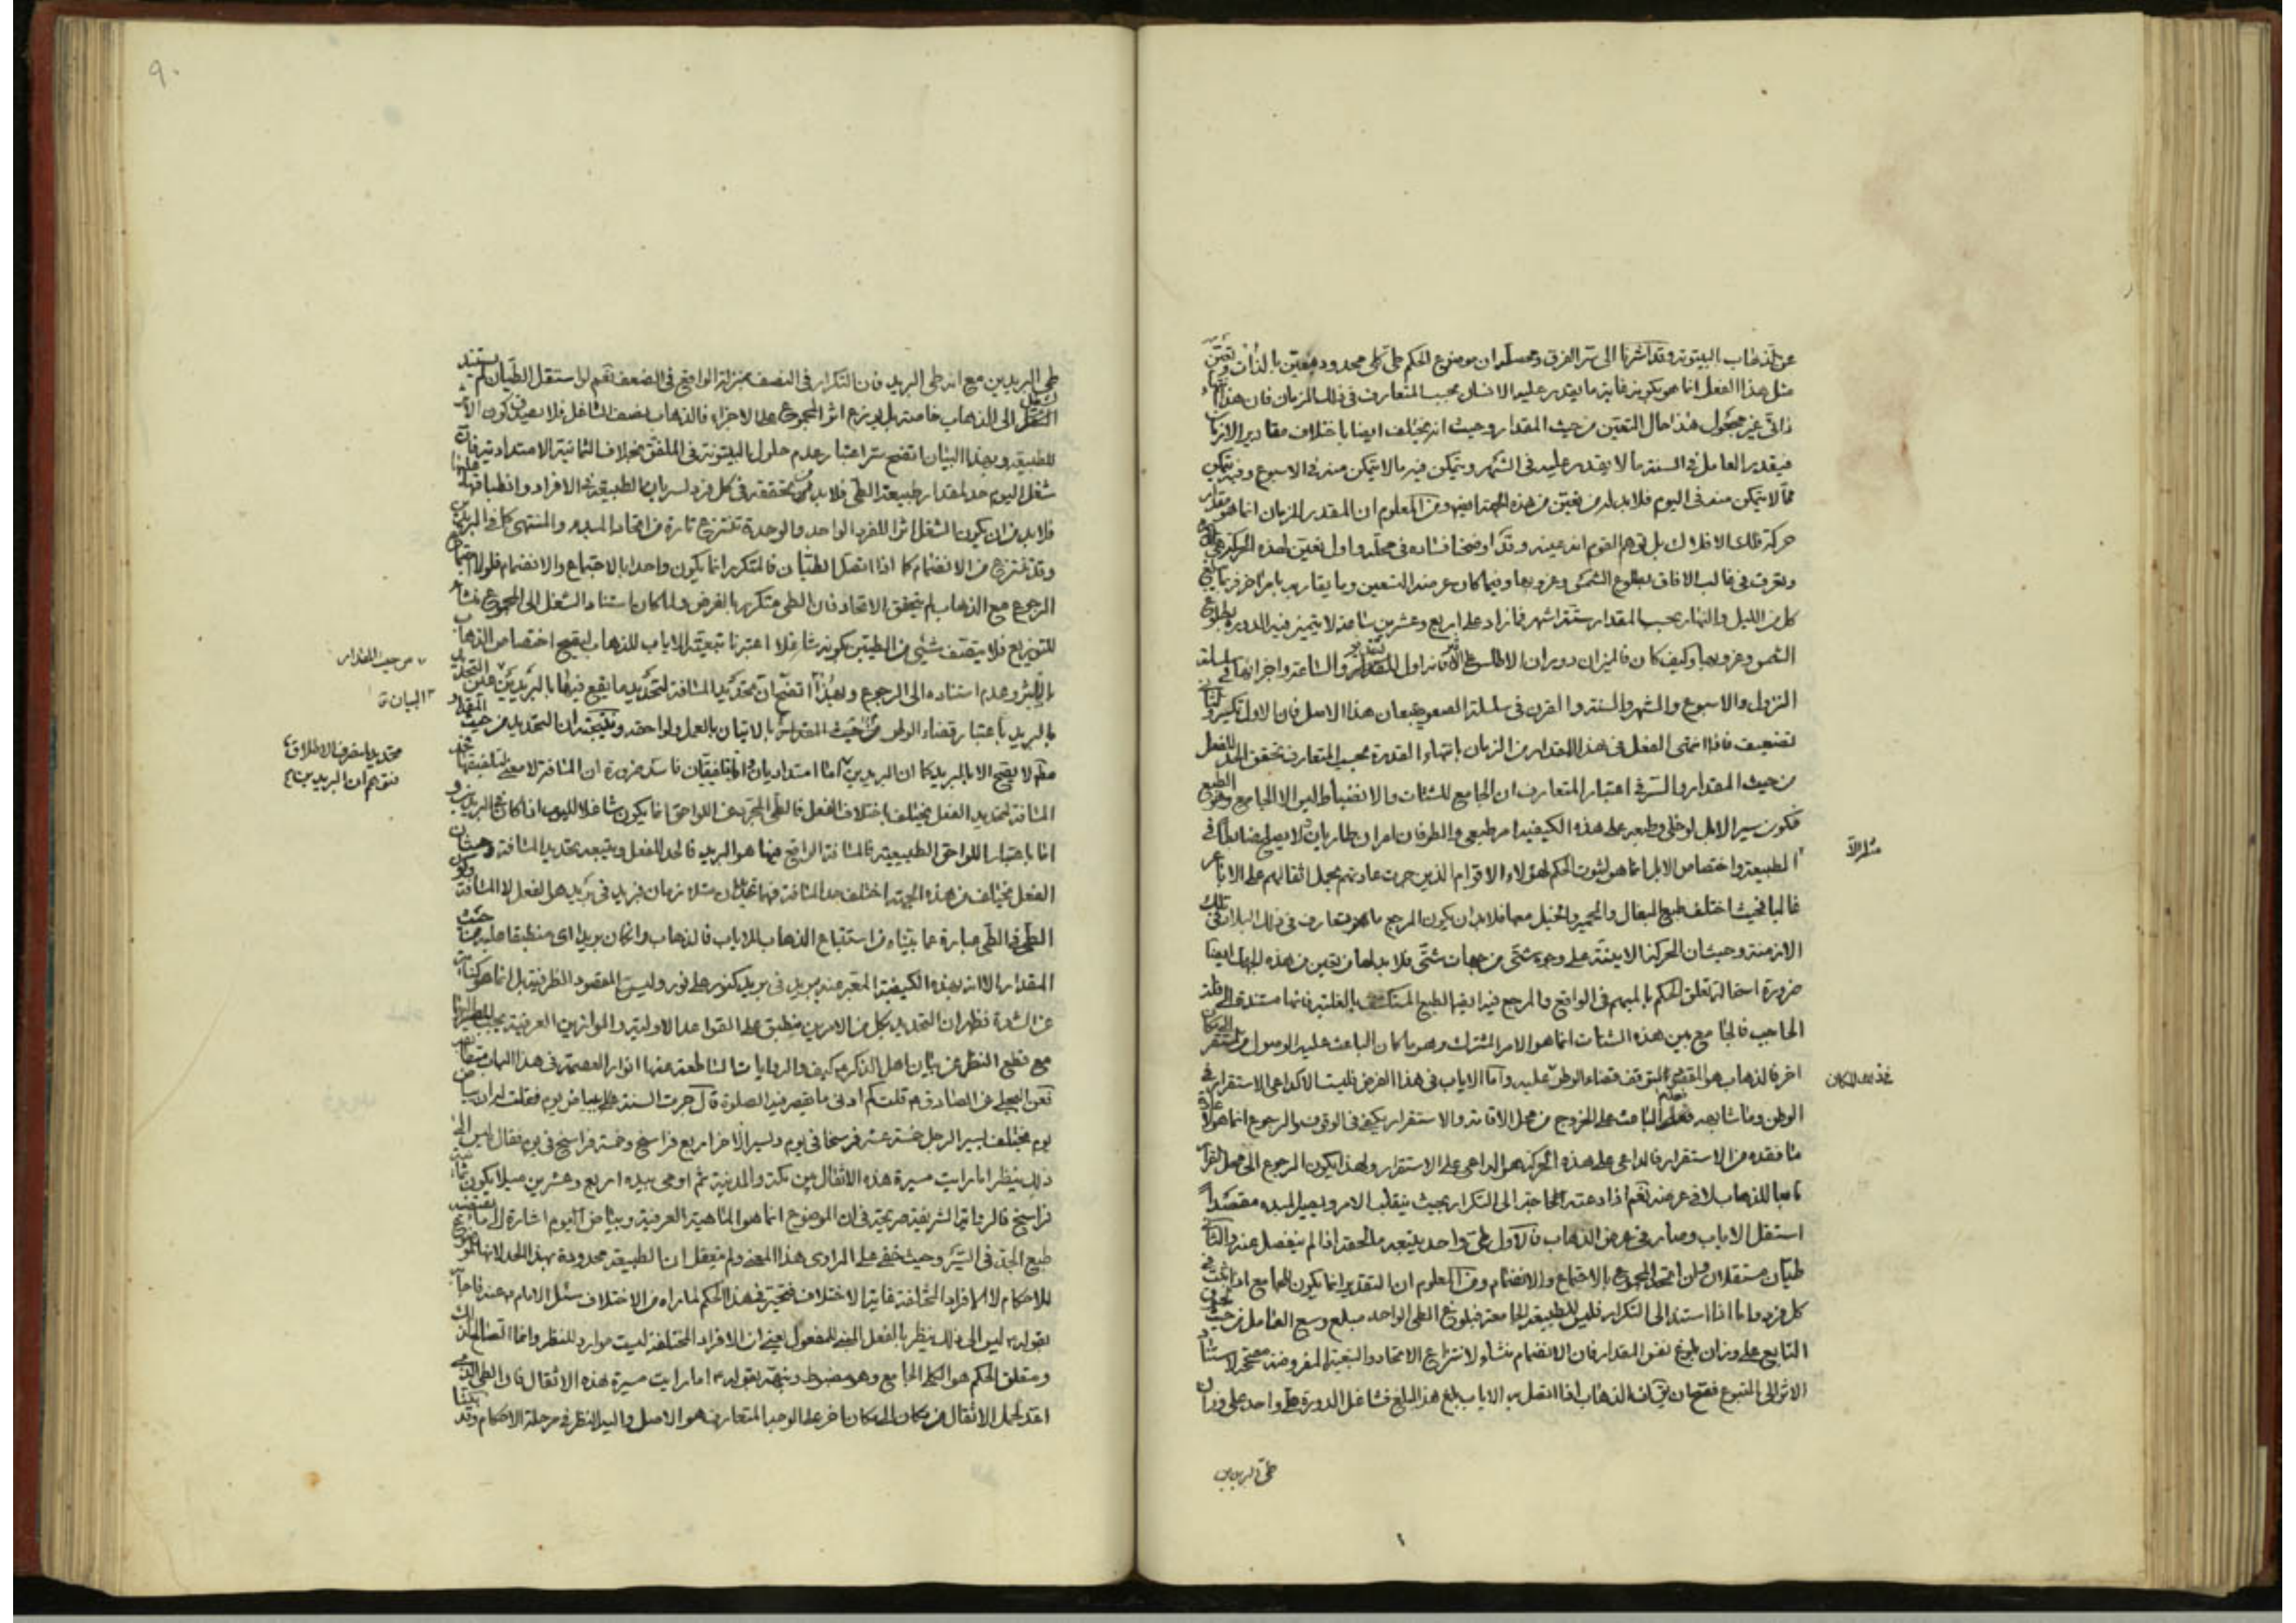 عن الذهاب البيتوتة وقد اشرنا الى سر الفرق ومحصله ان موضوع الحكم طى كلى محدود متعين بالذات وتعين
مثل هذا الفعل انما هو بكونه غاية ما يقدر عليه الانسان بحسب المتعارف فى ذلك الزمان فان هذا
ذاتى غير مجعول هذا حال التعين من حيث المقدار وحيث انه يختلف ايضا باختلاف مقادير الازمان
فيقدر العامل فى السنة ما لا يقدر عليه فى الشهر ويتمكن فيه ما لا يتمكن منه فى الاسبوع وفيه يتمكن
مما لا يتمكن منه فى اليوم فلابد له من تعين من هذه الجهة ايضا ومن المعلوم ان المقدر للزمان انما هو مقدار
حركة فلك الافلاك بل توهم القوم انه عينه وقد اوضحنا فساده فى محله واول تعين لهذه الحركة
وتعرف فى غالب الافاق بطلوع الشمس وغروبها وفيما كان عرضه التسعين وما يقاربه بامر اخر فربما يبلغ
كل من الليل والنهار بحسب المقدار ستة اشهر فما زاد على اربع وعشرين ساعة لا يتميز فيه الدورة بطلوع
الشمس وغروبها وكيف كان فالميزان دوران الاطلس فانه اول المقدار والساعة واجزائها فى سلسلة
النزول والاسبوع والشهر والسنة والقرن فى سلسلة الصعود يتبعان هذا الاصل فان الاول تكسير والثانى
تضعيف فاذا انتهى الفعل فى هذا المقدار من الزمان بانتهاء القدرة بحسب المتعارف تحقق الحد للفعل
من حيث المقدار والسر فى اعتبار المتعارف ان الجامع للشتات والانضباط ليس الا الجامع وهو الطبع
فكون سير الابل لو خلى وطبعه على هذه الكيفية امر طبيعى والطرفان امران طاريان لا يصلح ضابطا فى
الطبيعة واختصاص الابل انما هو لثبوت الحكم لهؤلاء الاقوام الذين جرت عادتهم بحمل اثقالهم على الاباعر
غالبا فحيث اختلف طبع البغال والحمير والخيل معها فلابد ان يكون المرجع ما هو متعارف فى ذلك البلاد فى تلك
الازمنة وحيث ان الحركة الاينية على وجوه شتى من جهات شتى فلابد لها من تعين من هذه الجهات ايضا
ضرورة استحالة تعلق الحكم بالمبهم فى الواقع والمرجع فيه ايضا الطبع المنكشف بالغلبة فانها مستندة الى قلة
الحاجب فالجامع بين هذه الشتات انما هو الامر المشترك وهو ما كان الباعث عليه الوصول من مستقر الى مكان
اخر فالذهاب هو المقضى المتوقف قضاء الوطر عليه واما الاياب فى هذا الغرض فليس الا لداعى الاستقرار فى
الوطن وما شابهه فعلم الباعث على الخروج من محل الاقامة والاستقرار يكفى فى الوقوف والرجوع انما هو لا
منا فقده من الاستقرار فالداعى على هذه الحركة هو الداعى على الاستقرار ولهذا يكون الرجوع الى محل القرار
تابعا للذهاب لا فى عرضه نعم اذا دعته الحاجة الى التكرار بحيث ينقلب الامر ويصير المبدء مقصدا
استقل الاياب وصار فى عرض الذهاب فالاول طى واحد يتبعه ما لحقه اذا لم ينفصل عنه والثانى
طيان مستقلان وان اتحد المجموع بالاجتماع والانضمام ومن المعلوم ان التقدير انما يكون للجامع
كل فرد واما اذا استند الى التكرار فليس للطبيعة الجامعة فبلوغ الطى الواحد مبلغ وسع العامل من حيث
التابع على وزان بلوغ نفس المقدار فان الانضمام منشاء لانتزاع الاتحاد والتبعية المفروضة مصححة لاستناد
الاثر الى المتبوع فصح ان يق ان الذهاب اذا اتصل به الاياب بلغ هذا المبلغ فشاغل الدورة طى واحد على وزان
طى البريدين
طى البريدين مع انه طى البريد فان التكرار فى النصف بمنزلة الواقع فى الضعف نعم لو استقل الطيان لم يستند
الشغل الى الذهاب خاصة بل يوزع اثر المجموع على الاجزاء فالذهاب نصف الشاغل فلا يصدق كون الاثر
للطبيعة وبهذا البيان اتضح سر اعتبار عدم حلول البيتوتة فى الملفق بخلاف الثمانية الامتدادية فان
شغل اليوم حد لمقدار طبيعة الطى فلابد من تحققه فى كل فرد لسريان الطبيعة فى الافراد وانطباقها عليها
فلابد من ان يكون الشغل اثرا للفرد الواحد والوحدة تنتزع تارة من اتحاد المبدء والمنتهى كما فى البريدين
وقد تنتزع من الانضمام كما اذا اتصل الطيان فالمتكرر انما يكون واحدا بالاجتماع والانضمام فلولا اجتماع
الرجوع مع الذهاب لم يتحقق الاتحاد فان الطى متكرر بالفرض ولما كان استناد الشغل الى المجموع منشأ
للتوزيع فلا يتصف شئ من الطيين بكونه شاغلا اعتبرنا تبعية الاياب للذهاب ليصح اختصاص الذهاب
بالاثر وعدم استناده الى الرجوع وبهذا اتضح ان تحديد المسافة لتحديد ما يقع فيها بالبريدين
بالبريد باعتبار قضاء الوطر من حيث المقدار بالاتيان بالعمل ولواحقه ونتيجته ان التحديد من حيث المقدار
مطلقا لا يصح الا بالبريد كما ان البريدين اما امتداديان او تلفيقيان فاسد ضرورة ان المسافة لا معنى لتلفيقها
المسافة لتحديد الفعل يختلف باختلاف الفعل فالطى المجرد عن اللواحق انما يكون شاغلا لليوم اذا كان فى البريدين
اما باعتبار اللواحق الطبيعية فالمسافة الواقع فيها هو البريد فالحد للفعل ويتبعه تحديد المسافة وحيث ان
الفعل يختلف من هذه الجهة اختلف حد المسافة
الطى فى الطى عبارة عما بيناه من استتباع الذهاب للاياب فالذهاب وان كان بريدا اى منطبقا عليه من حيث
المقدار الا انه بهذه الكيفية المعتبر عنه ببريد فى بريد كنور على نور وليس المقصود الظرفية بل انما هو كناية
عن الشدة فظهر ان التحديد بكل من الامرين منطبق على القواعد الاولية والموازين العرفية
مع قطع النظر عن بيان اهل الذكر ع كيف والروايات الساطعة عنها انوار العصمة فى هذا الباب
فعن البجلى عن الصادق ع قلت كم ادنى ما يقصر فيه الصلوة قال جرت السنة ببياض يوم فقلت له ان بياض
يوم يختلف يسير الرجل خمسة عشر فرسخا فى يوم ويسير الاخر اربع فراسخ وخمسة فراسخ فى يوم فقال ليس الى
ذلك ينظر اما رايت مسير هذه الاثقال بين مكة والمدينة ثم اومى بيده اربع وعشرين ميلا يكون ثمانية
فراسخ فالرواية الشريفة صريحة فى ان الموضوع انما هو الماهية العرفية وبياض اليوم اشارة الى ما يقتضيه
طبع الجد فى السير وحيث خفى على الراوى هذا المعنى ولم يتعقل ان الطبيعة محدودة بهذا الحد لانها الموضوع
للاحكام لا الافراد المختلفة غاية الاختلاف فتحير فى هذا الحكم لما راه من الاختلاف سئل الامام ع عنه فاجابه
بقوله ع ليس الى ذلك ينظر بالفعل المبنى للمفعول يعنى ان الافراد المختلفة ليست موارد للنظر وانما الصالح لذلك
ومتعلق الحكم هو الكلى الجامع وهو مضبوط ونبهه بقوله ع اما رايت مسيرة هذه الاثقال فان الطى الذى
اعد لحمل الاثقال من مكان الى مكان اخر على الوجه المتعارف هو الاصل واليه النظر فى مرحلة الاحكام وقد بينا
من حيث المقدار
البيان ق
تحديد
فتوهم ان البريدين
٩٠